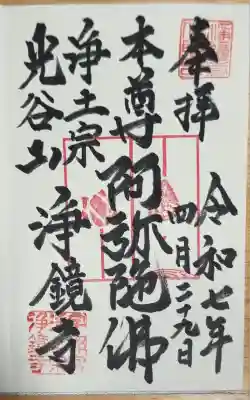 奉拝
令和七年
四月二十九日
本尊阿弥陀佛
浄土宗
光谷山 浄鏡寺